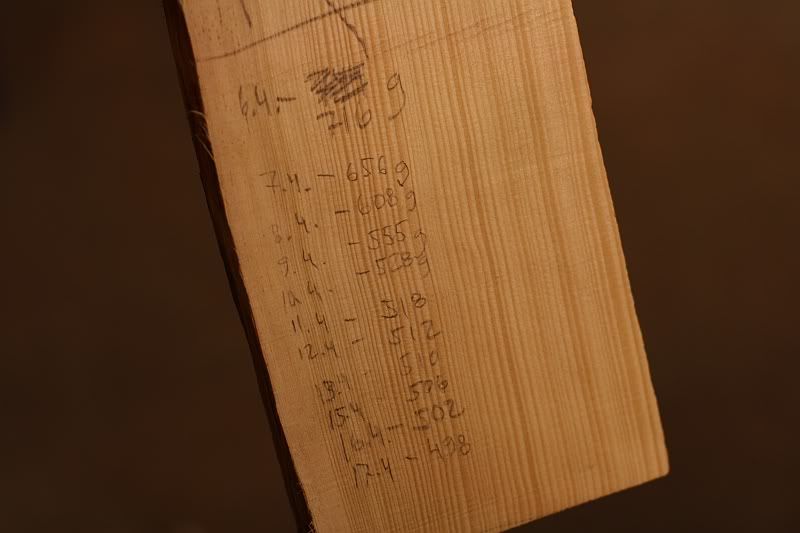 6.4. - g
710
7.4. - 656 g
8.4. - 608 g
9.4. - 555 g
10.4. - 528 g
11.4 - 518
12.4 - 512
13.4 - 510
15.4 506
16.4. - 502
17.4 - 498